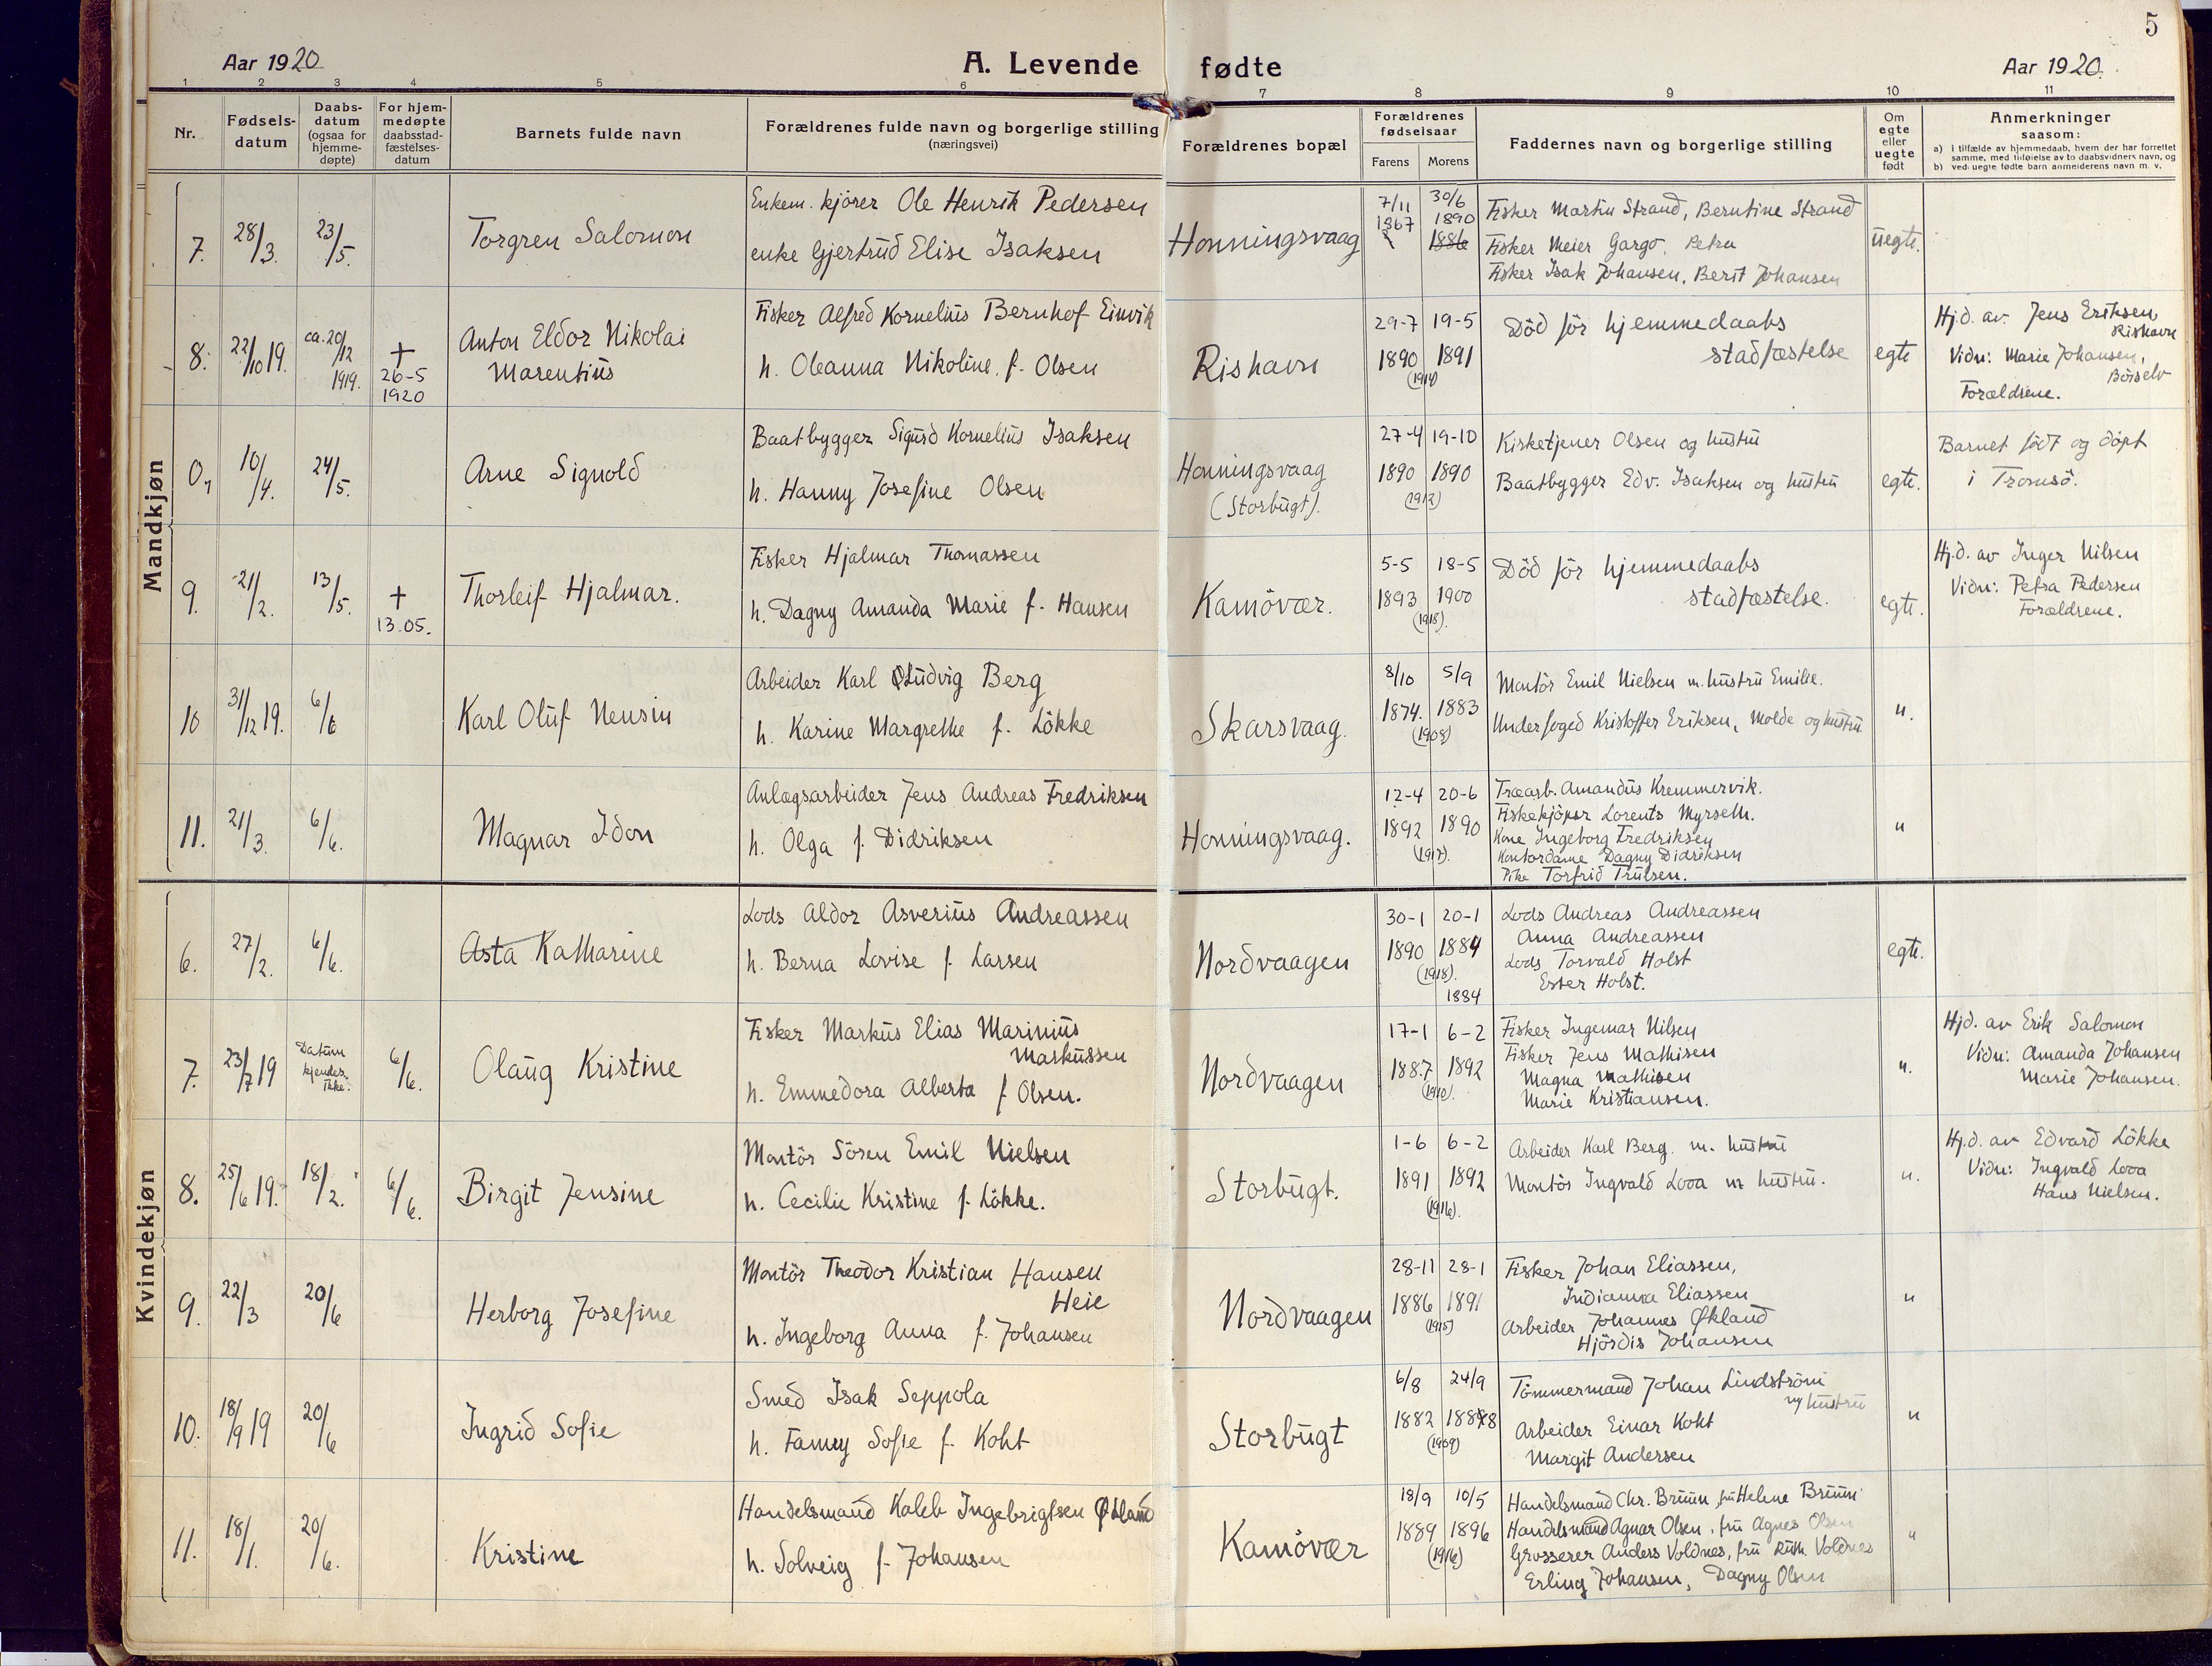 5
Aar 1920
A. Levende fødte
Aar 1920.
1 2 3 4 5 6 7 8 9 10 11
Nr.
Fødsels-
datum
Daabs-
datum
(ogsaa for
hjemme-
døpte)
For hjem-
medøpte
daabsstad-
fæstelses-
datum
Barnets fulde navn
Forældrenes fulde navn og borgerlige stilling
(næringsvei)
Forældrenes bopæl
Forældrenes
fødselsaar
Farens Morens
Faddernes navn og borgerlige stilling
Om
egte
eller
uegte
født
Anmerkninger
saasom:
a) i tilfælde av hjemmedaab, hvem der har forrettet
samme, med tilføielse av to daabsvidners navn, og
b) ved uegte fødte barn anmelderens navn m. v.
Mandkjøn
7. 28/3. 23/5.
Torgren Salomon
Enkem. kjører Ole Henrik Pedersen
enke Gjertrud Elise Isaksen
Honningsvaag
7/11 30/6
1867 1890
1886
Fisker Martin Strand, Berntine Strand
Fisker Meier Gargo. Petra
Fisker Isak Johansen, Berit Johansen
uegte.
8. 22/10 19. ca. 20/12 1919. + 26-5 1920
Anton Eldor Nikolai
Marentius
Fisker Alfred Kornelius Bernhof Einvik
h. Oleanna Nikoline. f. Olsen
Rishavn
29-7 19-5
1890 1891
(1914)
Död för hjemmedaabs
stadfæstelse
egte
Hj.d. av. Jens Eriksen,
Rishavn
Vidn: Marie Johansen,
Börselv
Forældrene.
0, 10/4. 24/5.
Arne Signold
Baatbygger Sigurd Kornelius Isaksen
h. Hanny Josefine Olsen
Honningsvaag
(Storbugt).
27-4 19-10
1890 1890
(1912)
Kirketjener Olsen og hustru
Baatbygger Edv. Isaksen og hustru
egte.
Barnet født og döpt
i Tromsö.
9. 21/2. 13/5. + 13.05.
Thorleif Hjalmar.
Fisker Hjalmar Thomassen
h. Dagny Amanda Marie f. Hansen
Kamövær.
5-5 18-5
1893 1900
(1918).
Död för hjemmedaabs
stadfæstelse.
egte.
Hj.d. av Inger Nilsen
Vidn: Petra Pedersen
Forældrene.
10 31/12 19. 6/6
Karl Oluf Nensin
Arbeider Karl Ludvig Berg
h. Karine Margrethe f. Lökke
Skarsvaag.
8/10 5/9
1874. 1883
(1908)
Montör Emil Nielsen m. hustru Emilie.
Underfoged Kristoffer Eriksen, Molde og hustru
".
11. 21/3. 6/6.
Magnar Idon
Anlægsarbeider Jens Andreas Fredriksen
h. Olga f. Didriksen
Honningsvaag.
12-4 20-6
1892 1890
(1917).
Træarb. Amandus Kremmervik.
Fiskekjöper Lorents Myrseth.
Kone Ingeborg Fredriksen
Kontordame Dagny Didriksen
Pike Torfrid Trulsen.
"
Kvindekjøn
6. 27/2. 6/6.
Asta Katharine
Lods Aldor Asverius Andreassen
h. Berna Lovise f. Larsen
Nordvaagen
30-1 20-1
1890 1884
(1918).
1884
Lods Andreas Andreassen
Anna Andreassen
Lods Torvald Holst
Ester Holst.
egte.
7. 23/7 19 Datum kjendes ikke. 6/6.
Olaug Kristine
Fisker Markus Elias Marinius
Markussen
h. Emmedora Alberta f. Olsen.
Nordvaagen
17-1 6-2
1887 1892
(1910).
Fisker Ingemar Nilsen
Fisker Jens Mathisen
Magna Mathisen
Marie Kristiansen.
".
Hjd. av Erik Salomon
Vidn: Amanda Johansen
Marie Johansen.
8. 25/6 19. 18/2. 6/6.
Birgit Jensine
Montör Sören Emil Nielsen
h. Cecilie Kristine f. Lökke.
Storbugt.
1-6 6-2
1891 1892
(1916).
Arbeider Karl Berg. m. hustru
Montör Ingvald Looa m hustru.
".
Hj.d. av Edvard Lökke
Vidn: Ingvald Looa
Hans Nielsen.
9. 22/3 20/6
Herborg Josefine
Montör Theodor Kristian Hansen
Heie
h. Ingeborg Anna f. Johansen
Nordvaagen
28-11 28-1
1886 1891
(1915)
Fisker Johan Eliassen,
Indianna Eliassen
Arbeider Johannes Økland
Hjördis Johansen
"
10. 18/9 19 20/6
Ingrid Sofie
Smed Isak Seppola
h. Fanny Sofie f. Koht
Storbugt
6/8 24/9
1882 1888
(1909)
Tömmermand Johan Lindström
og hustru
Arbeider Einar Koht
Margit Andersen
"
11. 18/1. 20/6.
Kristine
Handelsmand Kaleb Ingebrigtsen Økland
h. Solveig f. Johansen
Kamövær
18/9 10/5
1889 1896
(1916)
Handelsmand Chr. Bruun, fru Helene Bruun
Handelsmand Agnar Olsen, fru Agnes Olsen
Grosserer Anders Voldnes, fru Voldnes
Erling Johansen, Dagny Olsen
"